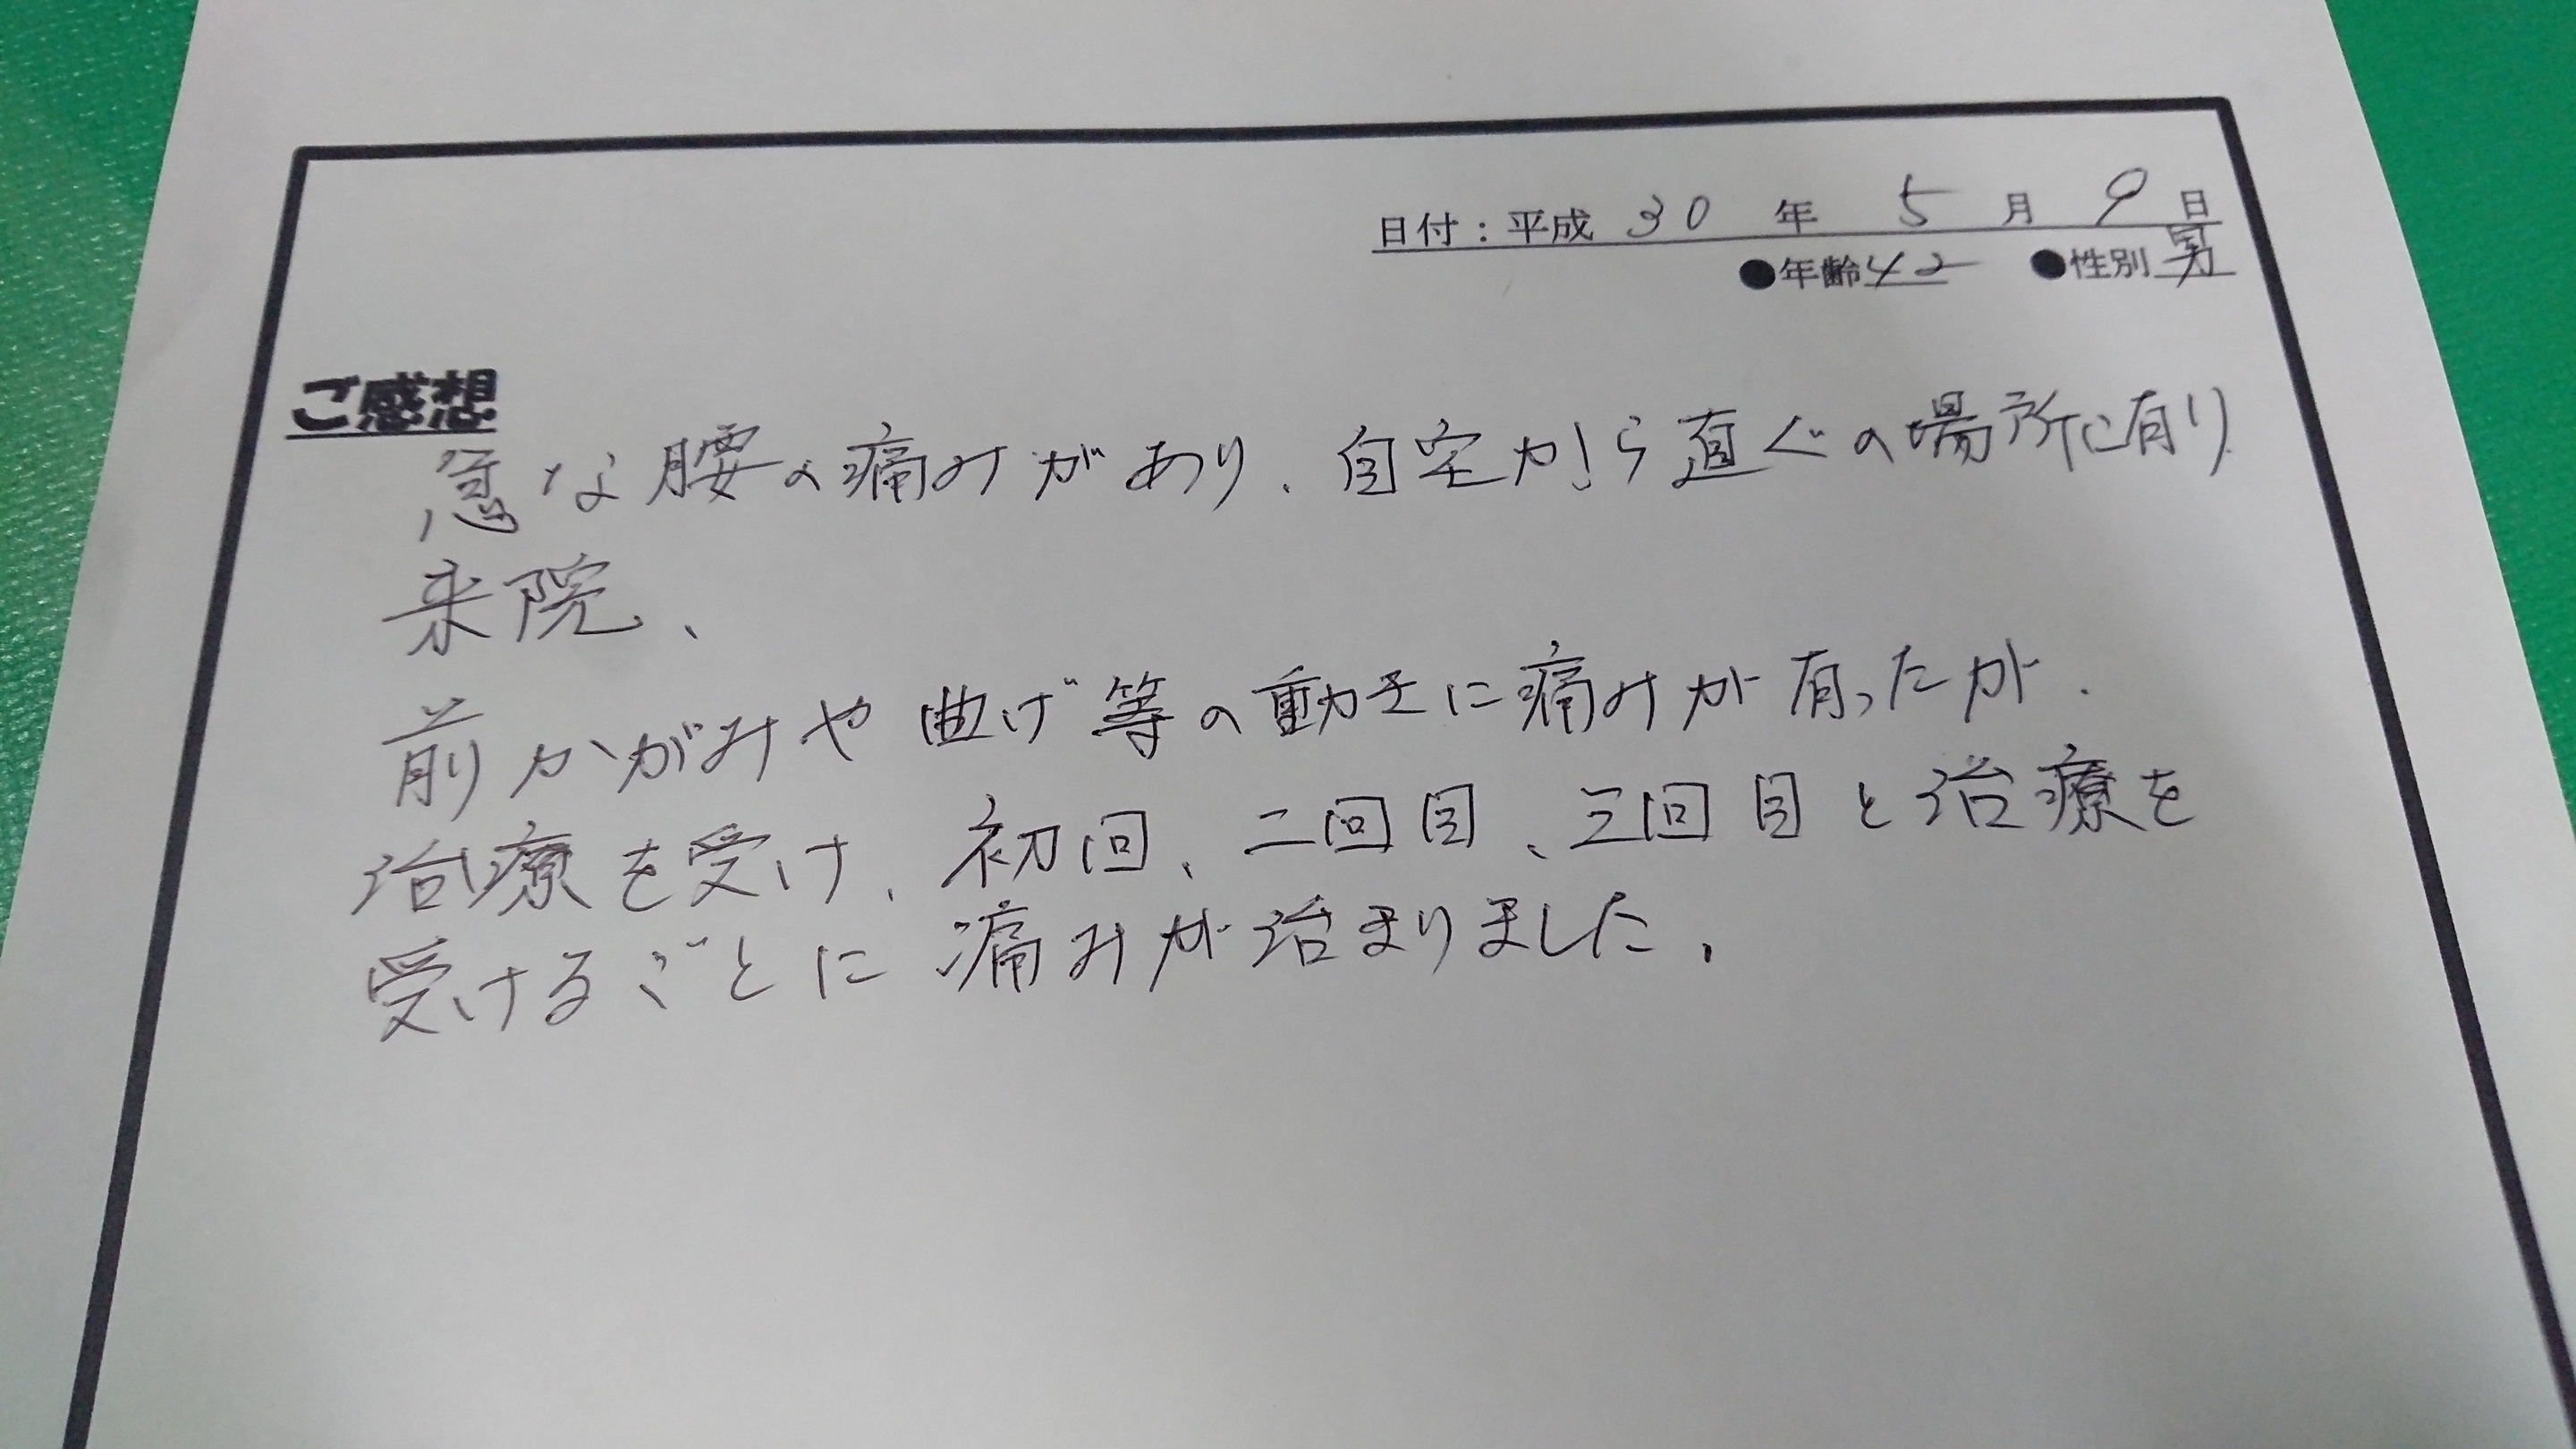 日付：平成 30 年 5 月 9 日
●年齢 42 ●性別 男
ご感想
急な腰の痛みがあり、自宅から直ぐの場所に有り
来院、
前かがみや曲げ等の動きに痛みが有ったが、
治療を受け、初回、二回目、三回目と治療を
受けるごとに痛みが治まりました。